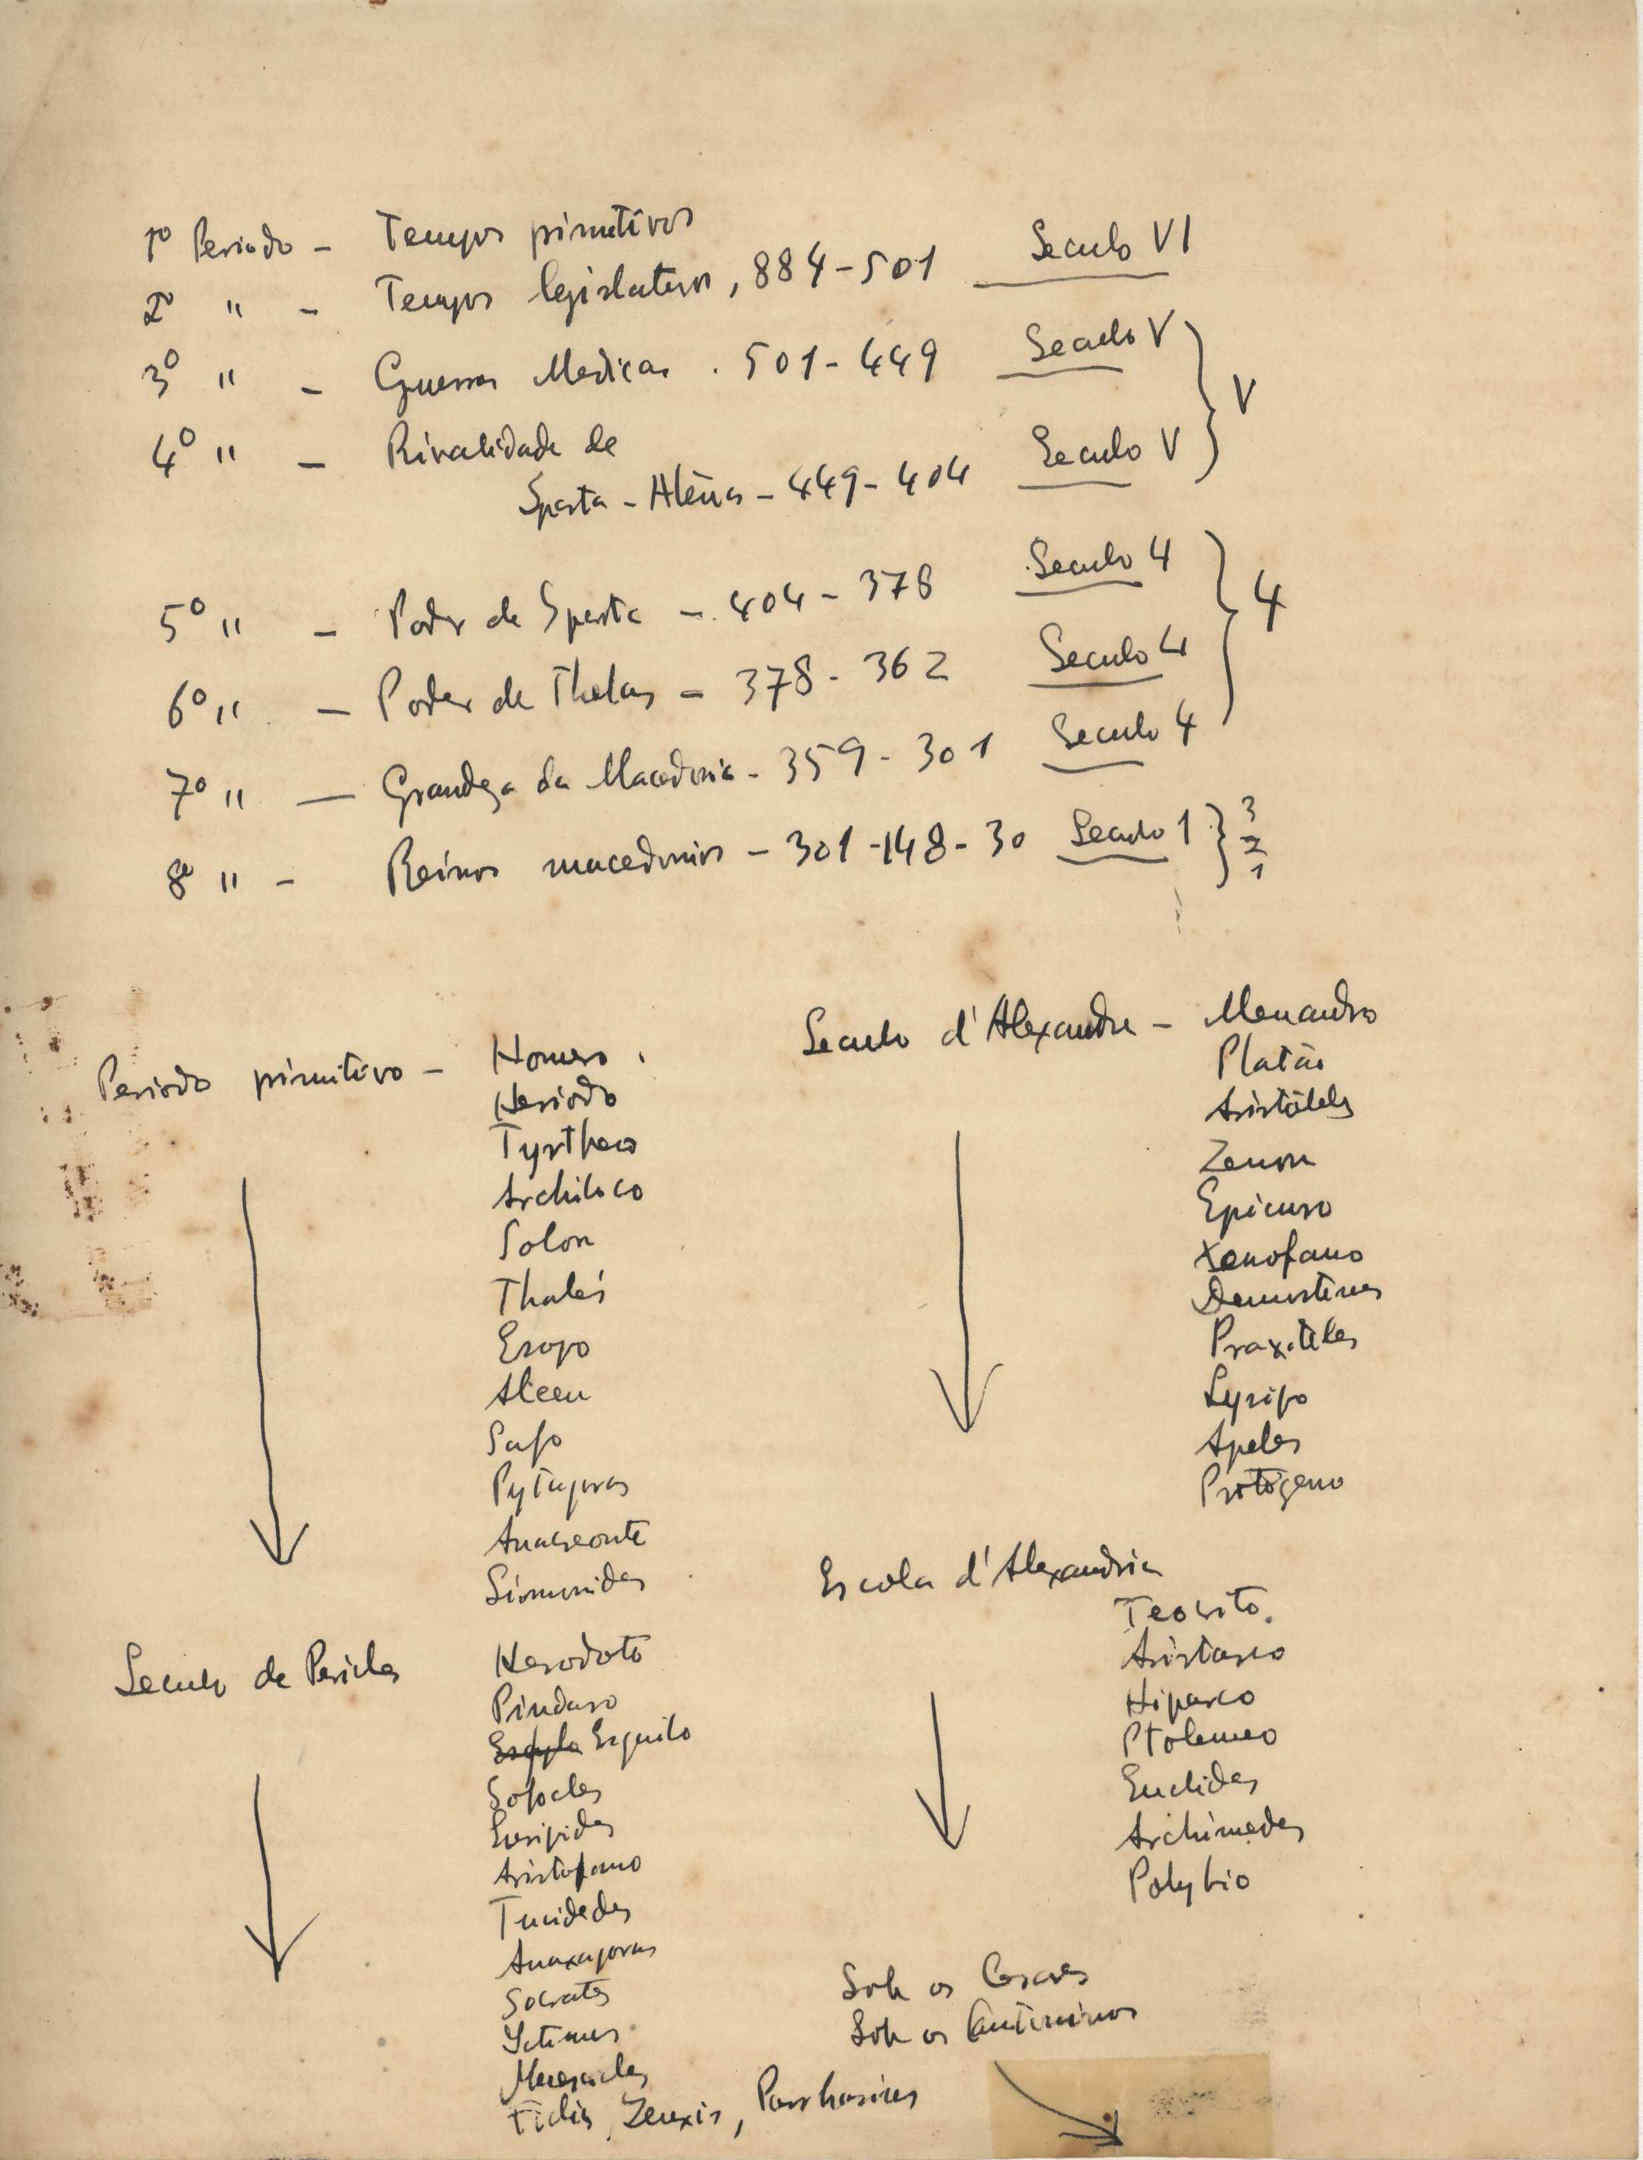 1º Periodo - Tempos primitivos
2º " - Tempos legislativos, 884-501 Seculo VI
3º " - Guerras Medicas. 501-449 Seculo V
4º " - Rivalidade de
Sparta - Atenas - 449-404 Seculo V } V
5º " - Poder de Sparta - 404-378 Seculo 4
6º " - Poder de Thebas - 378-362 Seculo 4 } 4
7º " - Grandeza da Macedonia - 359-301 Seculo 4
8º " - Reinos macedonios - 301-148-30 Seculo 1 } 3 2 1
Periodo primitivo - Homero.
Hesiodo
Tyrtheo
Archiloco
Solon
Thalés
Esopo
Alceu
Safo
Pytagoras
Anacreonte
Simonides
Seculo de Pericles
Herodoto
Pindaro
Esquilo
Sofocles
Euripides
Aristofano
Tucidedes
Anaxagoras
Socrates
Ictinus
Mnesicles
Fidias, Zeuxis, Parrhasius
Seculo d'Alexandre - Menandro
Platão
Aristóteles
Zenon
Epicuro
Xenofano
Demostenes
Praxiteles
Lysipo
Apeles
Protógeno
Escola d'Alexandria
Teocrito.
Aristarco
Hiparco
Ptolemeo
Euclides
Archimedes
Polybio
Sob os Cesares
Sob os Antoninos